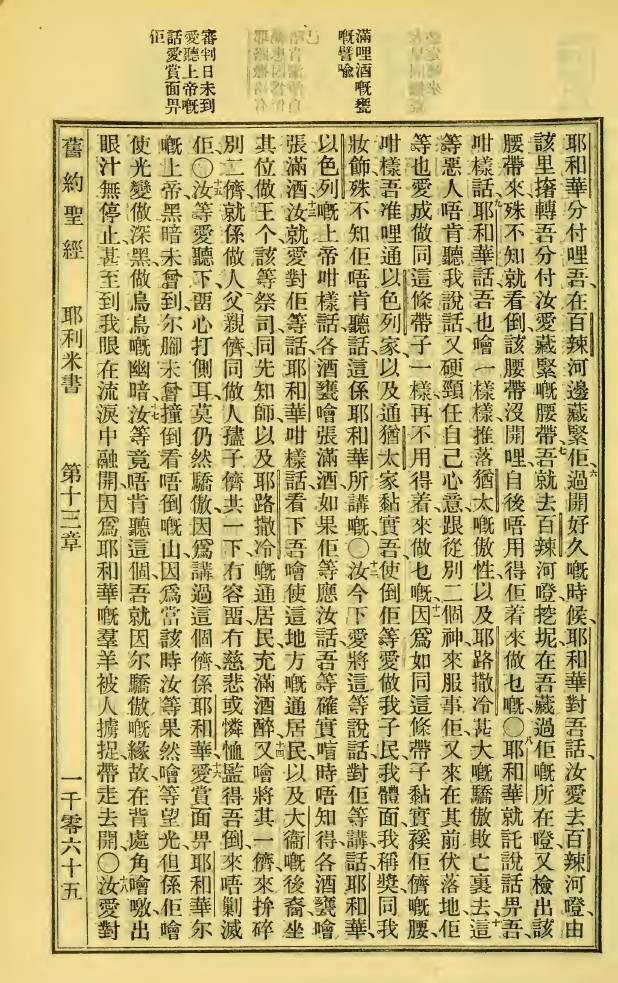 滿哩酒嘅甕
嘅譬喻
審判日未到
愛聽上帝嘅
話愛賞面畀
佢
耶和華分付哩吾、在百辣河邊藏緊佢、六過開好久嘅時候、耶和華對吾話、汝愛去百辣河嶝由
該里撍轉吾分付汝愛藏緊嘅腰帶、七吾就去百辣河嶝挖坭在吾藏過佢嘅所在嶝、又檢出該
腰帶來、殊不知就看倒該腰帶沒開哩、自後唔用得佢着來做乜嘅、〇八耶和華就託說話畀吾、
咁樣話、九耶和華話、吾也噲一樣樣推落猶太嘅傲性、以及耶路撒冷甚大嘅驕傲敗亡裏去、十這
等惡人唔肯聽我說話、又硬頸任自己心意、跟從別二個神來服事佢、又來在其前伏落地、佢
等也愛成做同這條帶子一樣、再不用得着來做乜嘅、十一因爲如同這條帶子黏實褑佢儕嘅腰、
咁樣吾准哩通以色列家、以及通猶太家黏實吾、使倒佢等愛做我子民、我體面、我稱獎、同我
妝飾、殊不知佢唔肯聽話、這係耶和華所講嘅、〇十二汝今下愛將這等說話對佢等講話、耶和華、
以色列嘅上帝咁樣話、各酒甕噲張滿酒、如果佢等應汝話、吾等確實喑時唔知得各酒甕噲
張滿酒、十三汝就愛對佢等話、耶和華咁樣話、看下、吾噲使這地方嘅通居民、以及大衞嘅後裔坐
其位做王个、該等祭司、同先知師、以及耶路撒冷嘅通居民、充滿酒醉、十四又噲將其一儕來拚碎
別二儕、就係做人父親儕同做人孻子儕共一下、冇容畱、冇慈悲、或憐恤監得吾倒來唔剿滅
佢、〇十五汝等愛聽下、畱心打側耳、莫仍然驕傲、因爲講過這個儕係耶和華、十六愛賞面畀耶和華尔
嘅上帝、黑暗未曾到、尔腳未曾撞倒看唔倒嘅山、因爲當該時汝等果然噲等望光、但係佢噲
使光變做深黑、做烏烏嘅幽暗、十七汝等竟唔肯聽這個、吾就因尔驕傲嘅緣故、在背處角噲噭出
眼汁無停止、甚至到我眼在流淚中融開、因爲耶和華嘅羣羊被人擄捉、帶走去開、〇十八汝愛對
舊約聖經 耶利米書 第十三章 一千零六十五